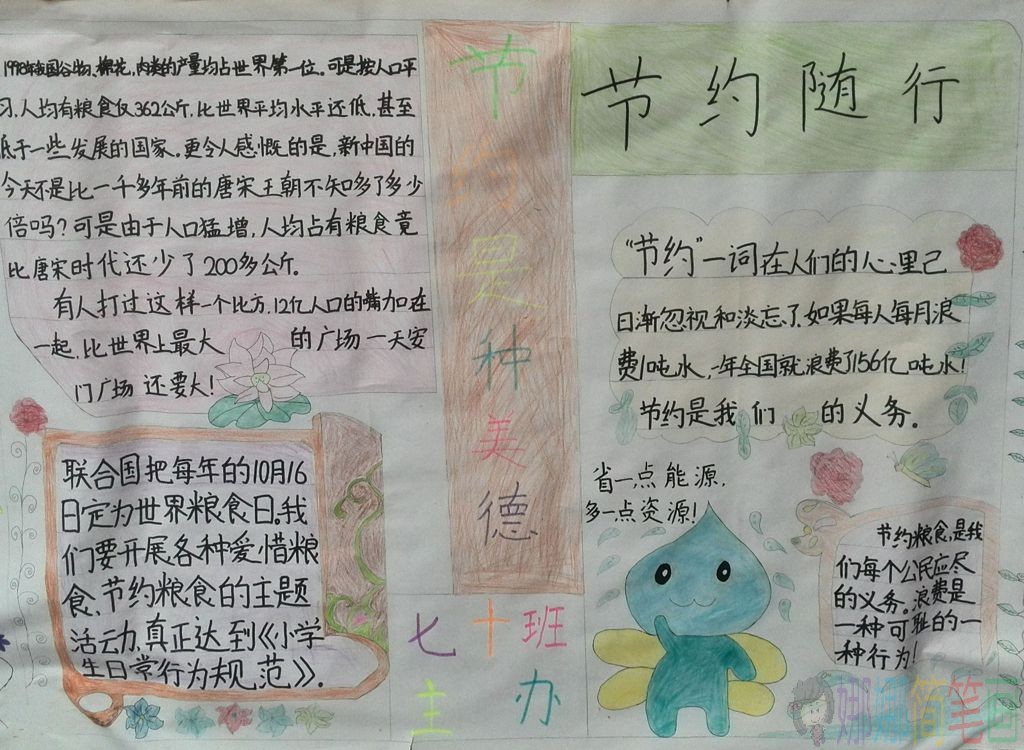 1998年我国谷物、棉花,肉类的产量均占世界第一位。可是按人口平
习,人均有粮食仅362公斤,比世界平均水平还低,甚至
低于一些发展的国家。更令人感慨的是,新中国的
今天不是比一千多年前的唐宋王朝不知多了多少
倍吗?可是由于人口猛增,人均占有粮食竟
比唐宋时代还少了200多公斤。
有人打过这样一个比方,12亿人口的嘴加在
一起,比世界上最大的广场一天安
门广场还要大!
联合国把每年的10月16
日定为世界粮食日。我
们要开展各种爱惜粮
食、节约粮食的主题
活动,真正达到《小学
生日常行为规范》.
节约是种美德
七十班
主办
节约随行
“节约”一词在人们的心里已
日渐忽视和淡忘了,如果每人每月浪
费1吨水,一年全国就浪费了156亿吨水!
节约是我们的义务。
省一点能源,
多一点资源!
节约粮食,是我
们每个公民应尽
的义务。浪费是
一种可耻的一
种行为!
娜娜简笔画